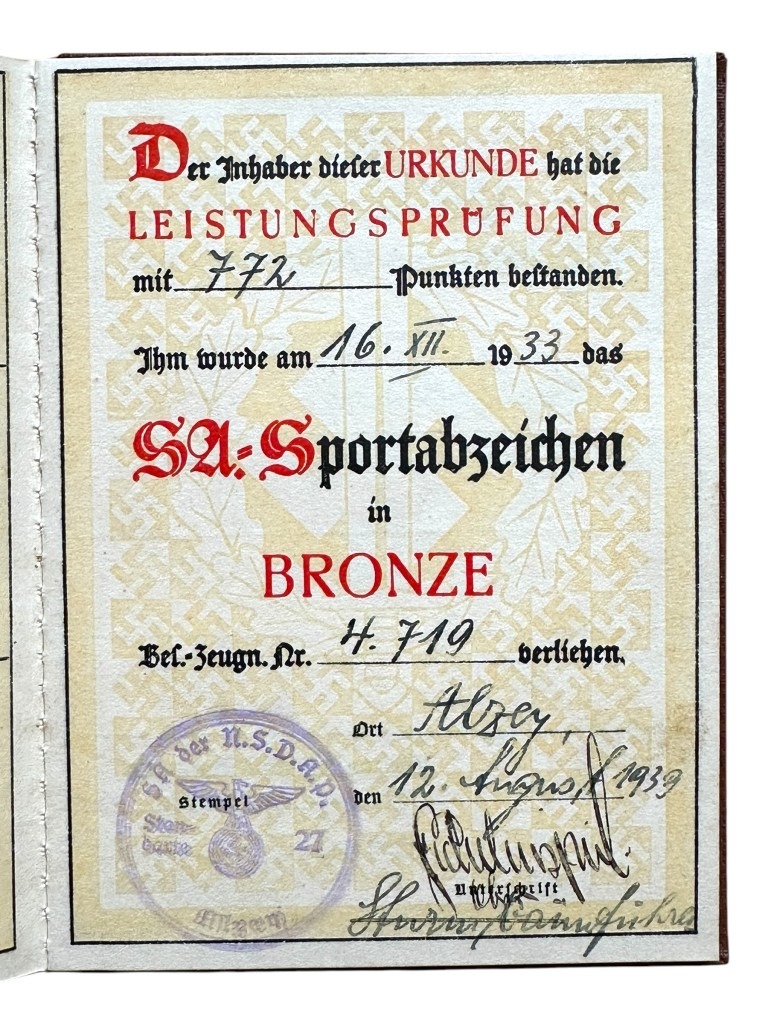 Der Inhaber dieser URKUNDE hat die
LEISTUNGSPRÜFUNG
mit 772 Punkten bestanden.
Ihm wurde am 16. XII. 1933 das
SA.=Sportabzeichen
in
BRONZE
Bes.=Zeugn. Nr. 4.719 verliehen.
Ort Alzey,
den 12. August 1939
SA der N.S.D.A.P.
Stempel
27
Unterschrift
Sturmbannführer